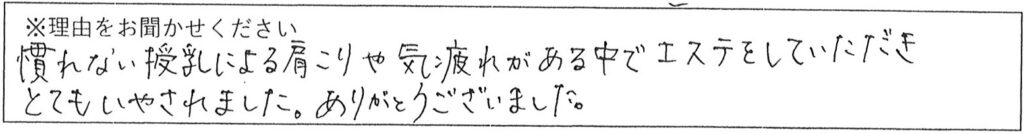 ※理由をお聞かせください
慣れない授乳による肩こりや気疲れがある中でエステをしていただき
とてもいやされました。ありがとうございました。